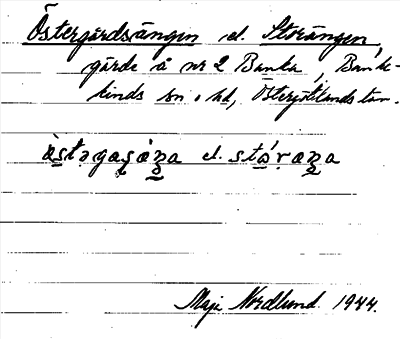 Östergärdsängen el. Storängen,
gärde å nr 2 Banka, Bank-
kinds sn o hd, Östergötlands län.
el.
Maja Nordlund 1944.